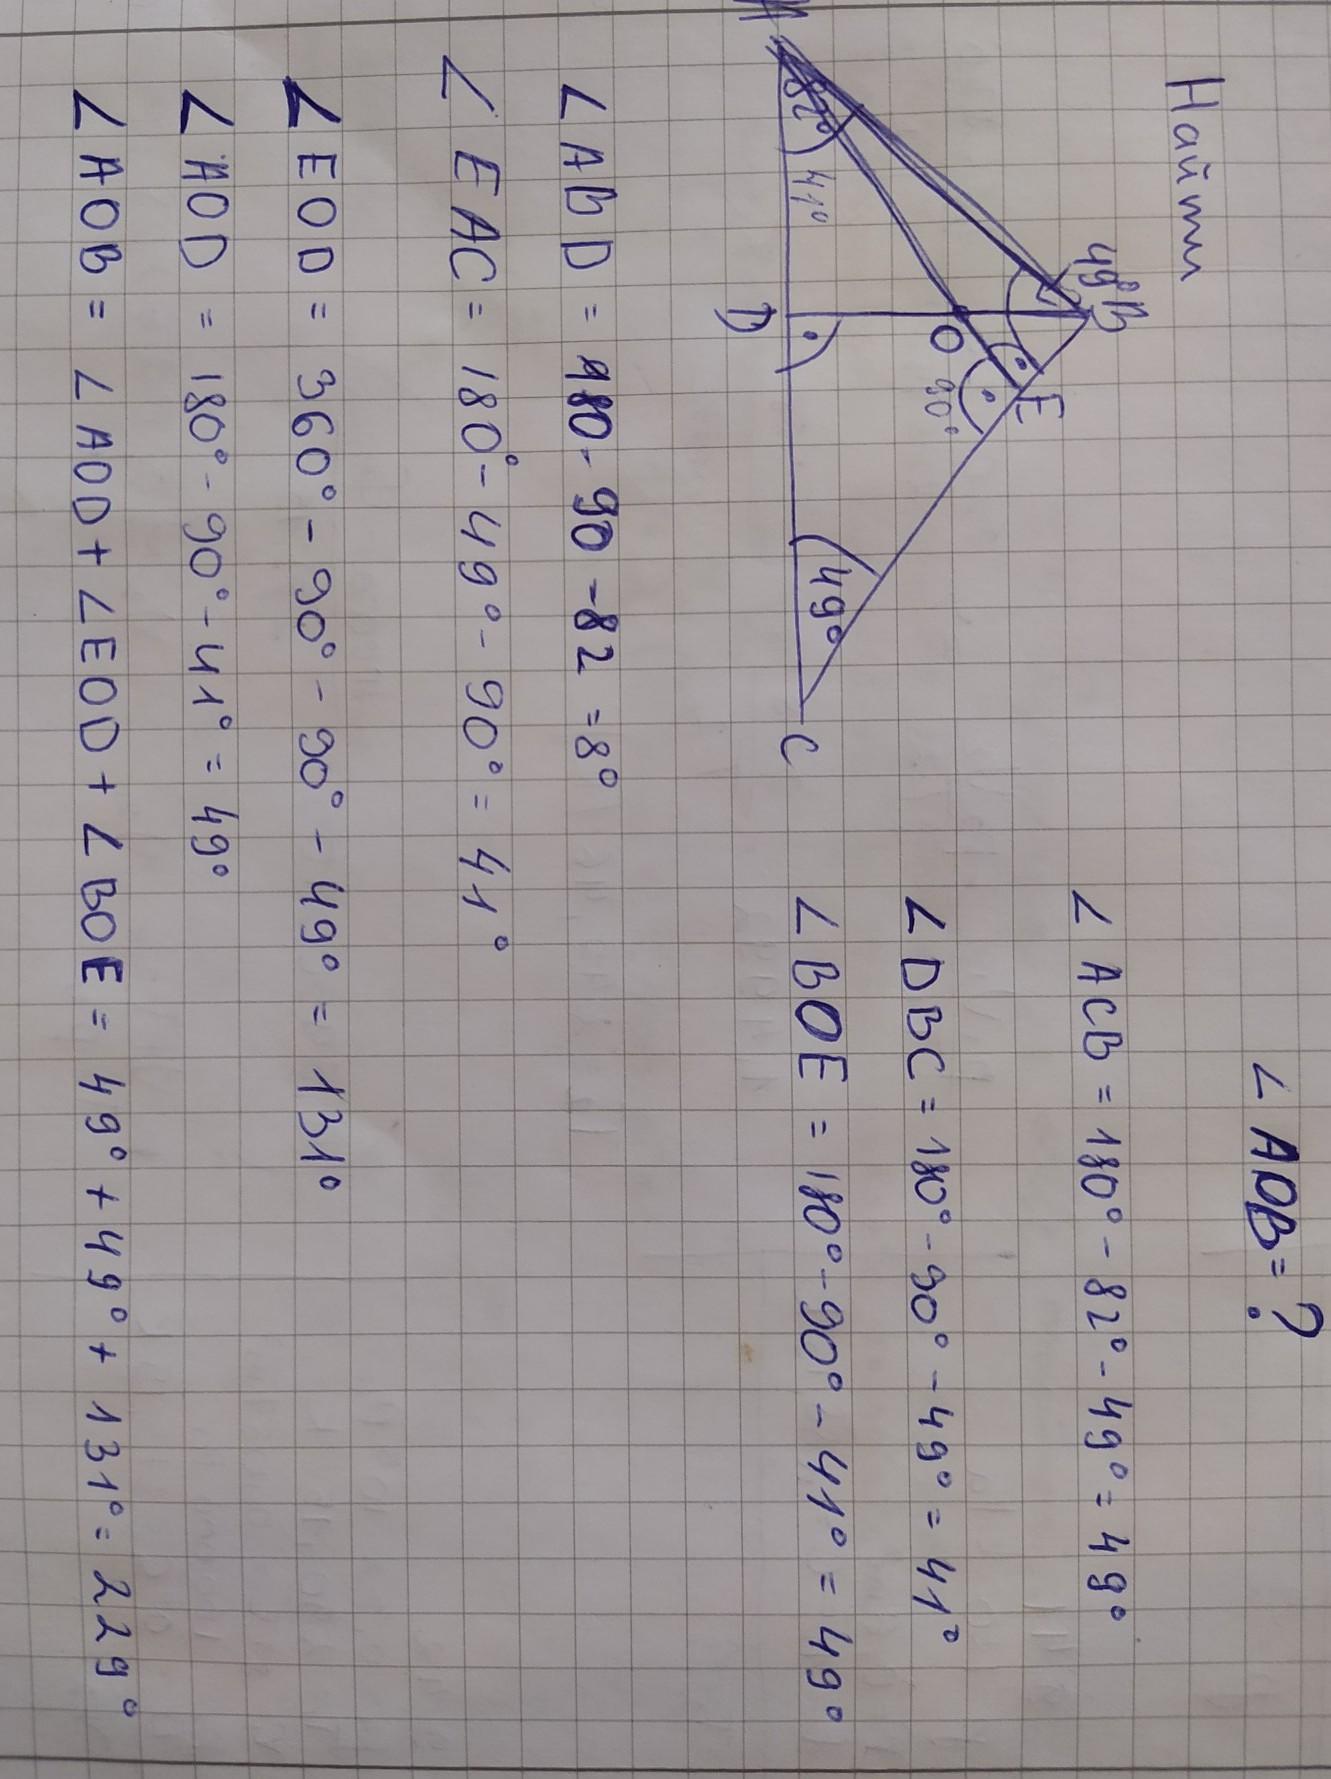 Найти ∠AOB = ?
B
49°
E
O
90°
A
82°
41°
D
49°
C
∠ACB = 180° - 82° - 49° = 49°
∠DBC = 180° - 90° - 49° = 41°
∠BOE = 180° - 90° - 41° = 49°
∠ABD = 180 - 90 - 82 = 8°
∠EAC = 180° - 49° - 90° = 41°
∠EOD = 360° - 90° - 90° - 49° = 131°
∠AOD = 180° - 90° - 41° = 49°
∠AOB = ∠AOD + ∠EOD + ∠BOE = 49° + 49° + 131° = 229°